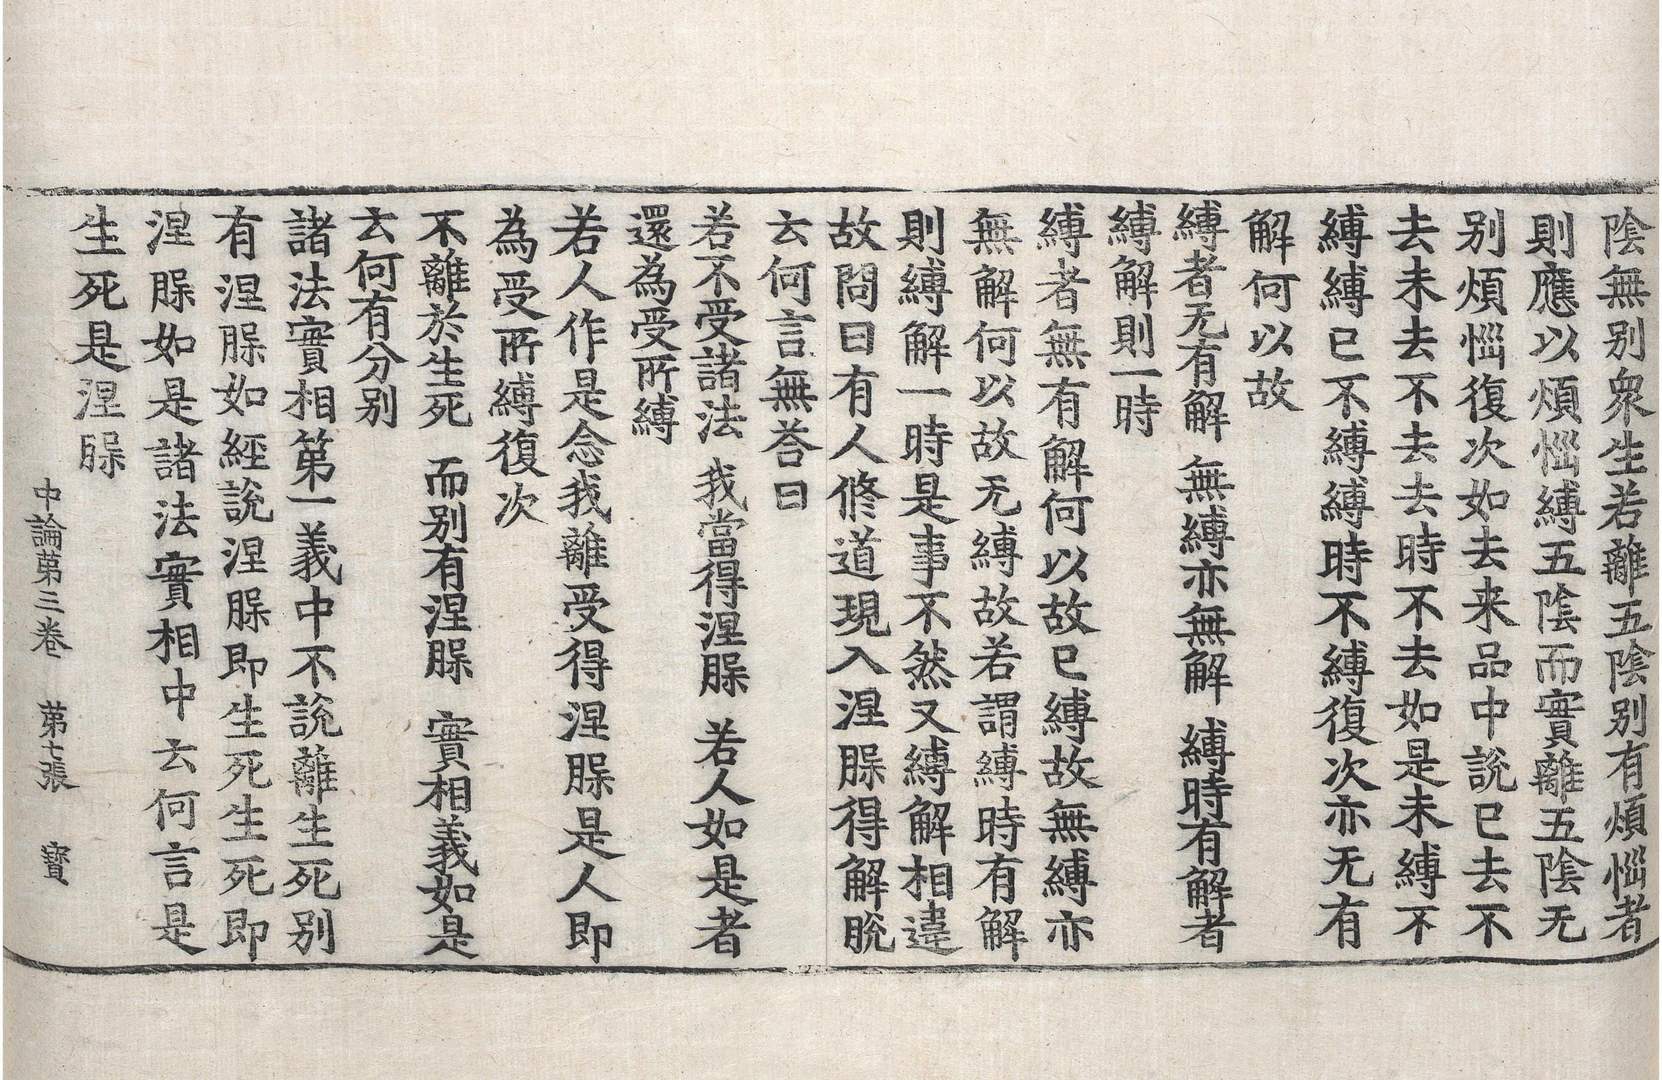 陰無別衆生若離五陰別有煩惱者
則應以煩惱縛五陰而實離五陰无
別煩惱復次如去来品中說已去不
去未去不去去時不去如是未縛不
縛縛已不縛縛時不縛復次亦无有
解何以故
縛者无有解 無縛亦無解 縛時有解者
縛解則一時
縛者無有解何以故已縛故無縛亦
無解何以故无縛故若謂縛時有解
則縛解一時是事不然又縛解相違
故問曰有人脩道現入涅槃得解脫
云何言無荅曰
若不受諸法 我當得涅槃 若人如是者
還為受所縛
若人作是念我離受得涅槃是人即
為受所縛復次
不離於生死 而別有涅槃 實相義如是
云何有分別
諸法實相第一義中不說離生死別
有涅槃如經說涅槃即生死生死即
涅槃如是諸法實相中云何言是
生死是涅槃
中論苐三卷 苐七張 寳